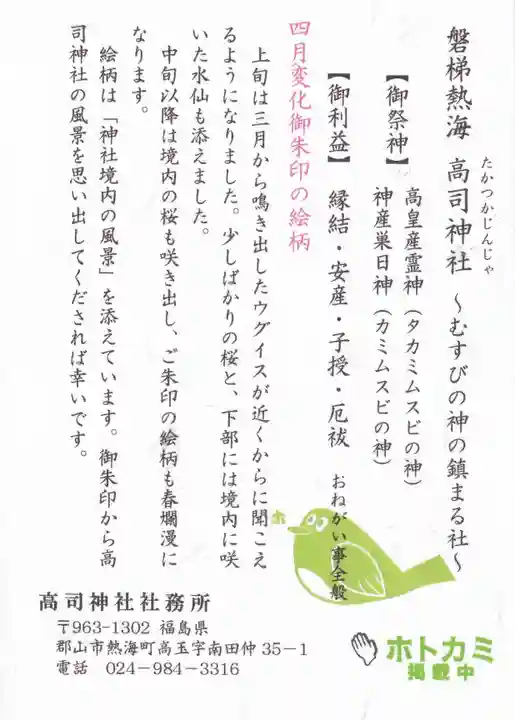 磐梯熱海 高司神社 ～むすびの神の鎮まる社～
たかつかじんじゃ
【御祭神】 高皇産霊神（タカミムスビの神）
神産巣日神（カミムスビの神）
【御利益】 縁結・安産・子授・厄祓 おねがい事全般
四月変化御朱印の絵柄
上旬は三月から鳴き出したウグイスが近くからに聞こえ
るようになりました。少しばかりの桜と、下部には境内に咲
いた水仙も添えました。
中旬以降は境内の桜も咲き出し、ご朱印の絵柄も春爛漫に
なります。
絵柄は「神社境内の風景」を添えています。御朱印から高
司神社の風景を思い出してくだされば幸いです。
ホ
高司神社社務所
〒963-1302 福島県
郡山市熱海町高玉字南田仲35－1
電話 024-984-3316
ホトカミ
掲載中